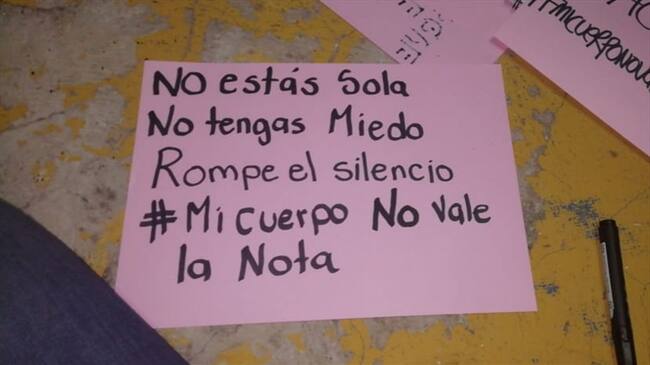 No estás Sola
No tengas Miedo
Rompe el silencio
#Mi cuerpo No Vale
la Nota